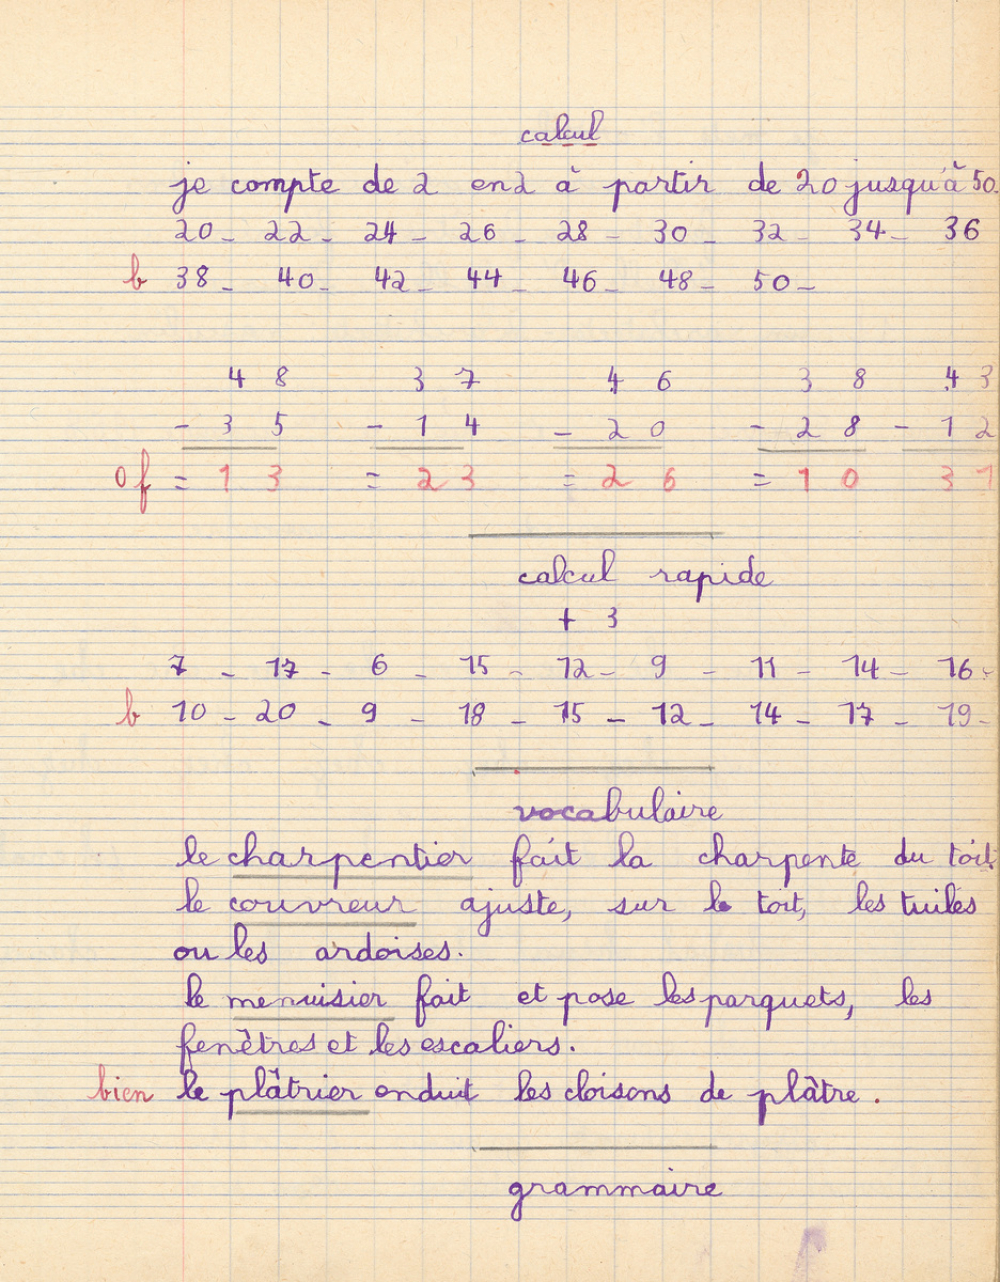 calcul
je compte de 2 en 2 à partir de 20 jusqu'à 50.
20 - 22 - 24 - 26 - 28 - 30 - 32 - 34 - 36
b 38 - 40 - 42 - 44 - 46 - 48 - 50 -
4 8 3 7 4 6 3 8 4 3
- 3 5 - 1 4 - 2 0 - 2 8 - 1 2
0f = 1 3 = 2 3 = 2 6 = 1 0 3 1
calcul rapide
+ 3
7 - 17 - 6 - 15 - 12 - 9 - 11 - 14 - 16 -
b 10 - 20 - 9 - 18 - 15 - 12 - 14 - 17 - 19 -
vocabulaire
le charpentier fait la charpente du toit.
le couvreur ajuste, sur le toit, les tuiles
ou les ardoises.
le menuisier fait et pose les parquets, les
fenêtres et les escaliers.
bien le plâtrier enduit les cloisons de plâtre.
grammaire